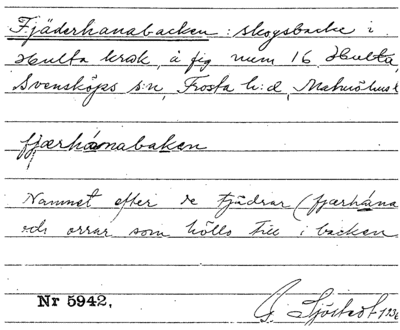 Fjäderhanabacken : skogsbacke i
Hulta krok, å fig num 16 Hulta,
Svensköps s:n, Frosta h:d, Malmöhus l
fjærhánabaken
Namnet efter de tjädrar (fjærhána
och orrar som höllo till i backen
Nr 5942.
G. Sjöstedt 1936